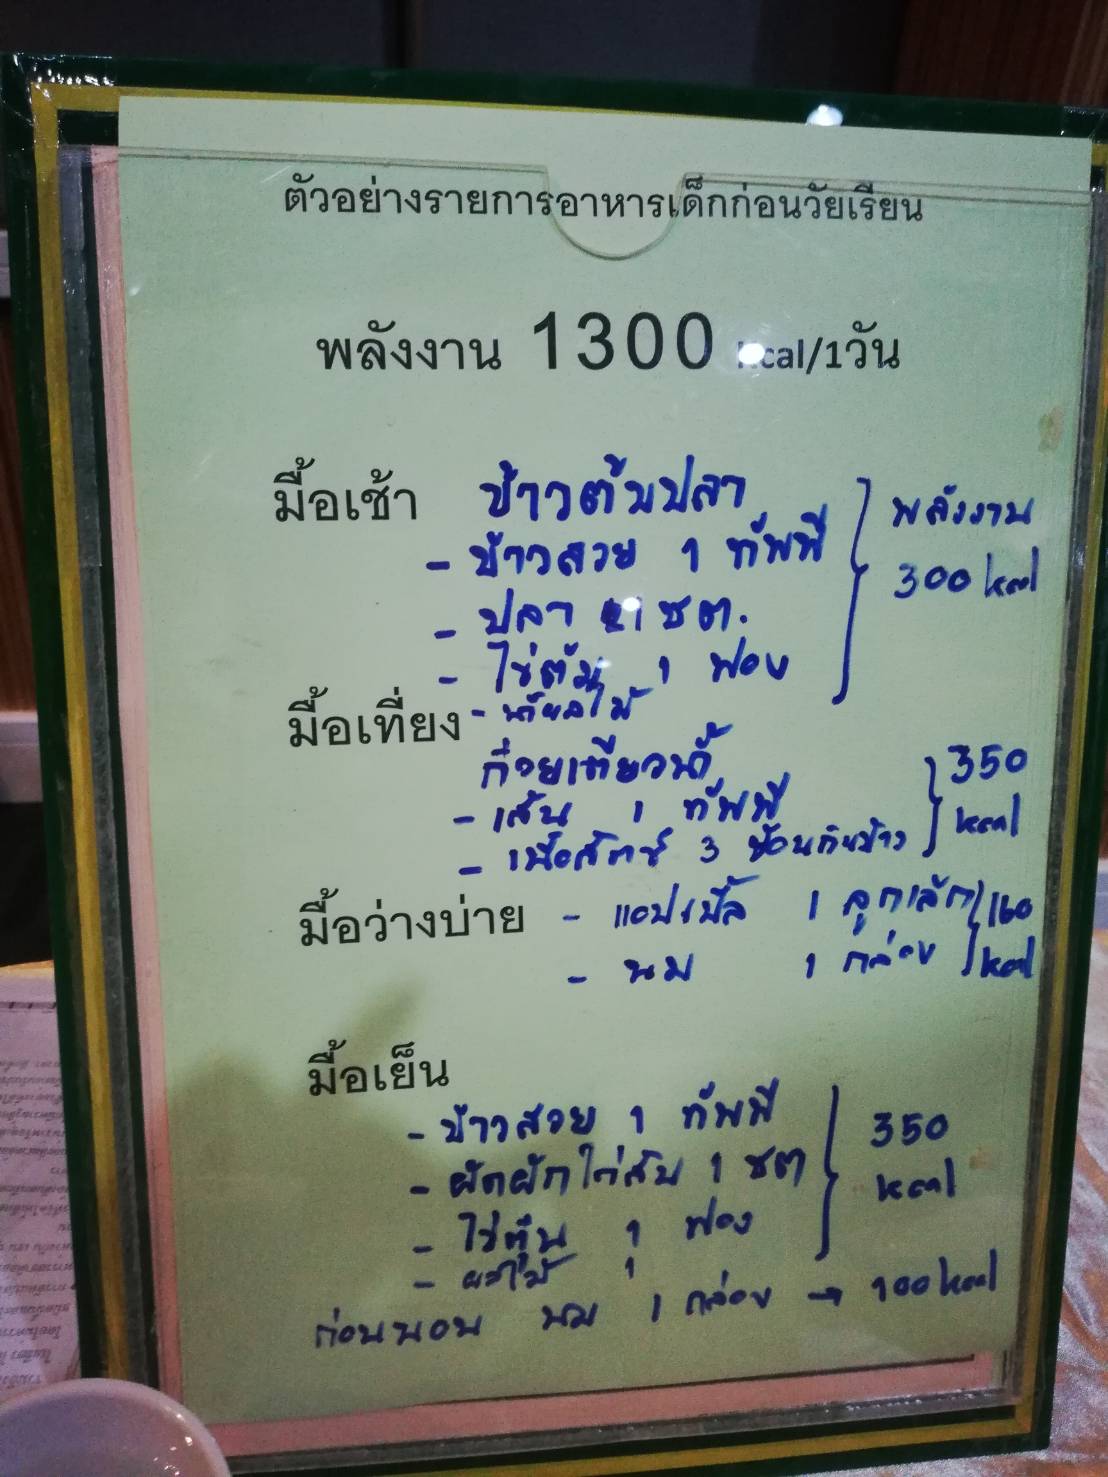 ตัวอย่างรายการอาหารเด็กก่อนวัยเรียน
พลังงาน 1300 kcal/1วัน
มื้อเช้า ข้าวต้มปลา
- ข้าวสวย 1 ทัพพี
- ปลา 1 ชต.
- ไข่ต้ม 1 ฟอง
พลังงาน
300 kcal
- น้ำผลไม้
มื้อเที่ยง
ก๋วยเตี๋ยวน้ำ
- เส้น 1 ทัพพี
- เนื้อสัตว์ 3 ช้อนกินข้าว
350
kcal
มื้อว่างบ่าย - แอปเปิ้ล 1 ลูกเล็ก
- นม 1 กล่อง
160
kcal
มื้อเย็น
- ข้าวสวย 1 ทัพพี
- ผัดผักไก่สับ 1 ชต
- ไข่ตุ๋น 1 ฟอง
- ผลไม้ 1
350
kcal
ก่อนนอน นม 1 กล่อง → 100 kcal